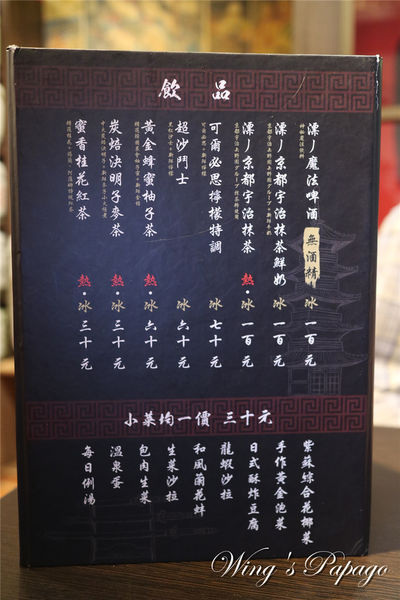 飲品
漂ノ魔法啤酒 無酒精 冰 一百元
漂ノ京都宇治抹茶鮮奶 冰 一百元
漂ノ京都宇治抹茶 熱·冰 一百元
可爾必思檸檬特調 冰 七十元
超沙鬥士 冰 六十元
黃金蜂蜜柚子茶 熱·冰 六十元
炭焙決明子麥茶 熱·冰 三十元
蜜香桂花紅茶 熱·冰 三十元
小菜均一價 三十元
紫蘇綜合花椰菜
手作黃金泡菜
日式酥炸豆腐
龍蝦沙拉
和風蘭花蚌
生菜沙拉
包肉生菜
溫泉蛋
每日例湯
Wing's Papago